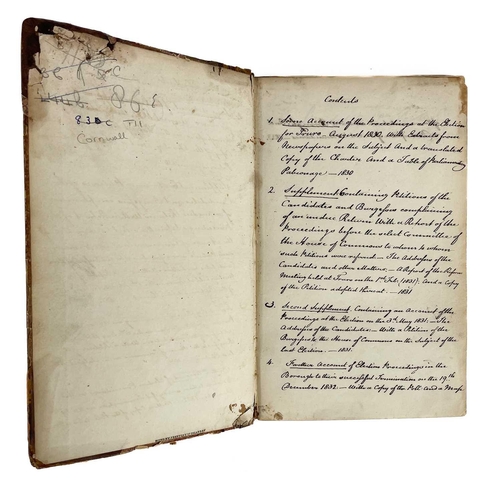 86
830C TM
Cornwall
Contents
1. Some Account of the Proceedings at the Election
for Truro - August 1830, With Extracts from
Newspapers on the Subject And a translated
Copy of the Charter And a Table of Parliamentary
Patronage — 1830
2. Supplement Containing Petitions of the
Candidates and Burgesses complaining
of an undue Return With a Report of the
Proceedings before the select Committee of
the House of Commons to whom to whom
such Petitions were referred — The Addresses of the
Candidates and other Matters; — A Report of the Reform
Meeting held at Truro on the 1st Feb, (1831) And a Copy
of the Petition adopted thereat. — 1831
3. Second Supplement, Containing an Account of the
Proceedings at the Election on the 3rd May 1831 — The
Addresses of the Candidates — With a Petition of the
Burgesses to the House of Commons on the Subject of the
last Election. — 1831.
4. Further Account of Election Proceedings in the
Borough to their successful Termination on the 19th
December 1832 — With a Copy of the Poll And a Map